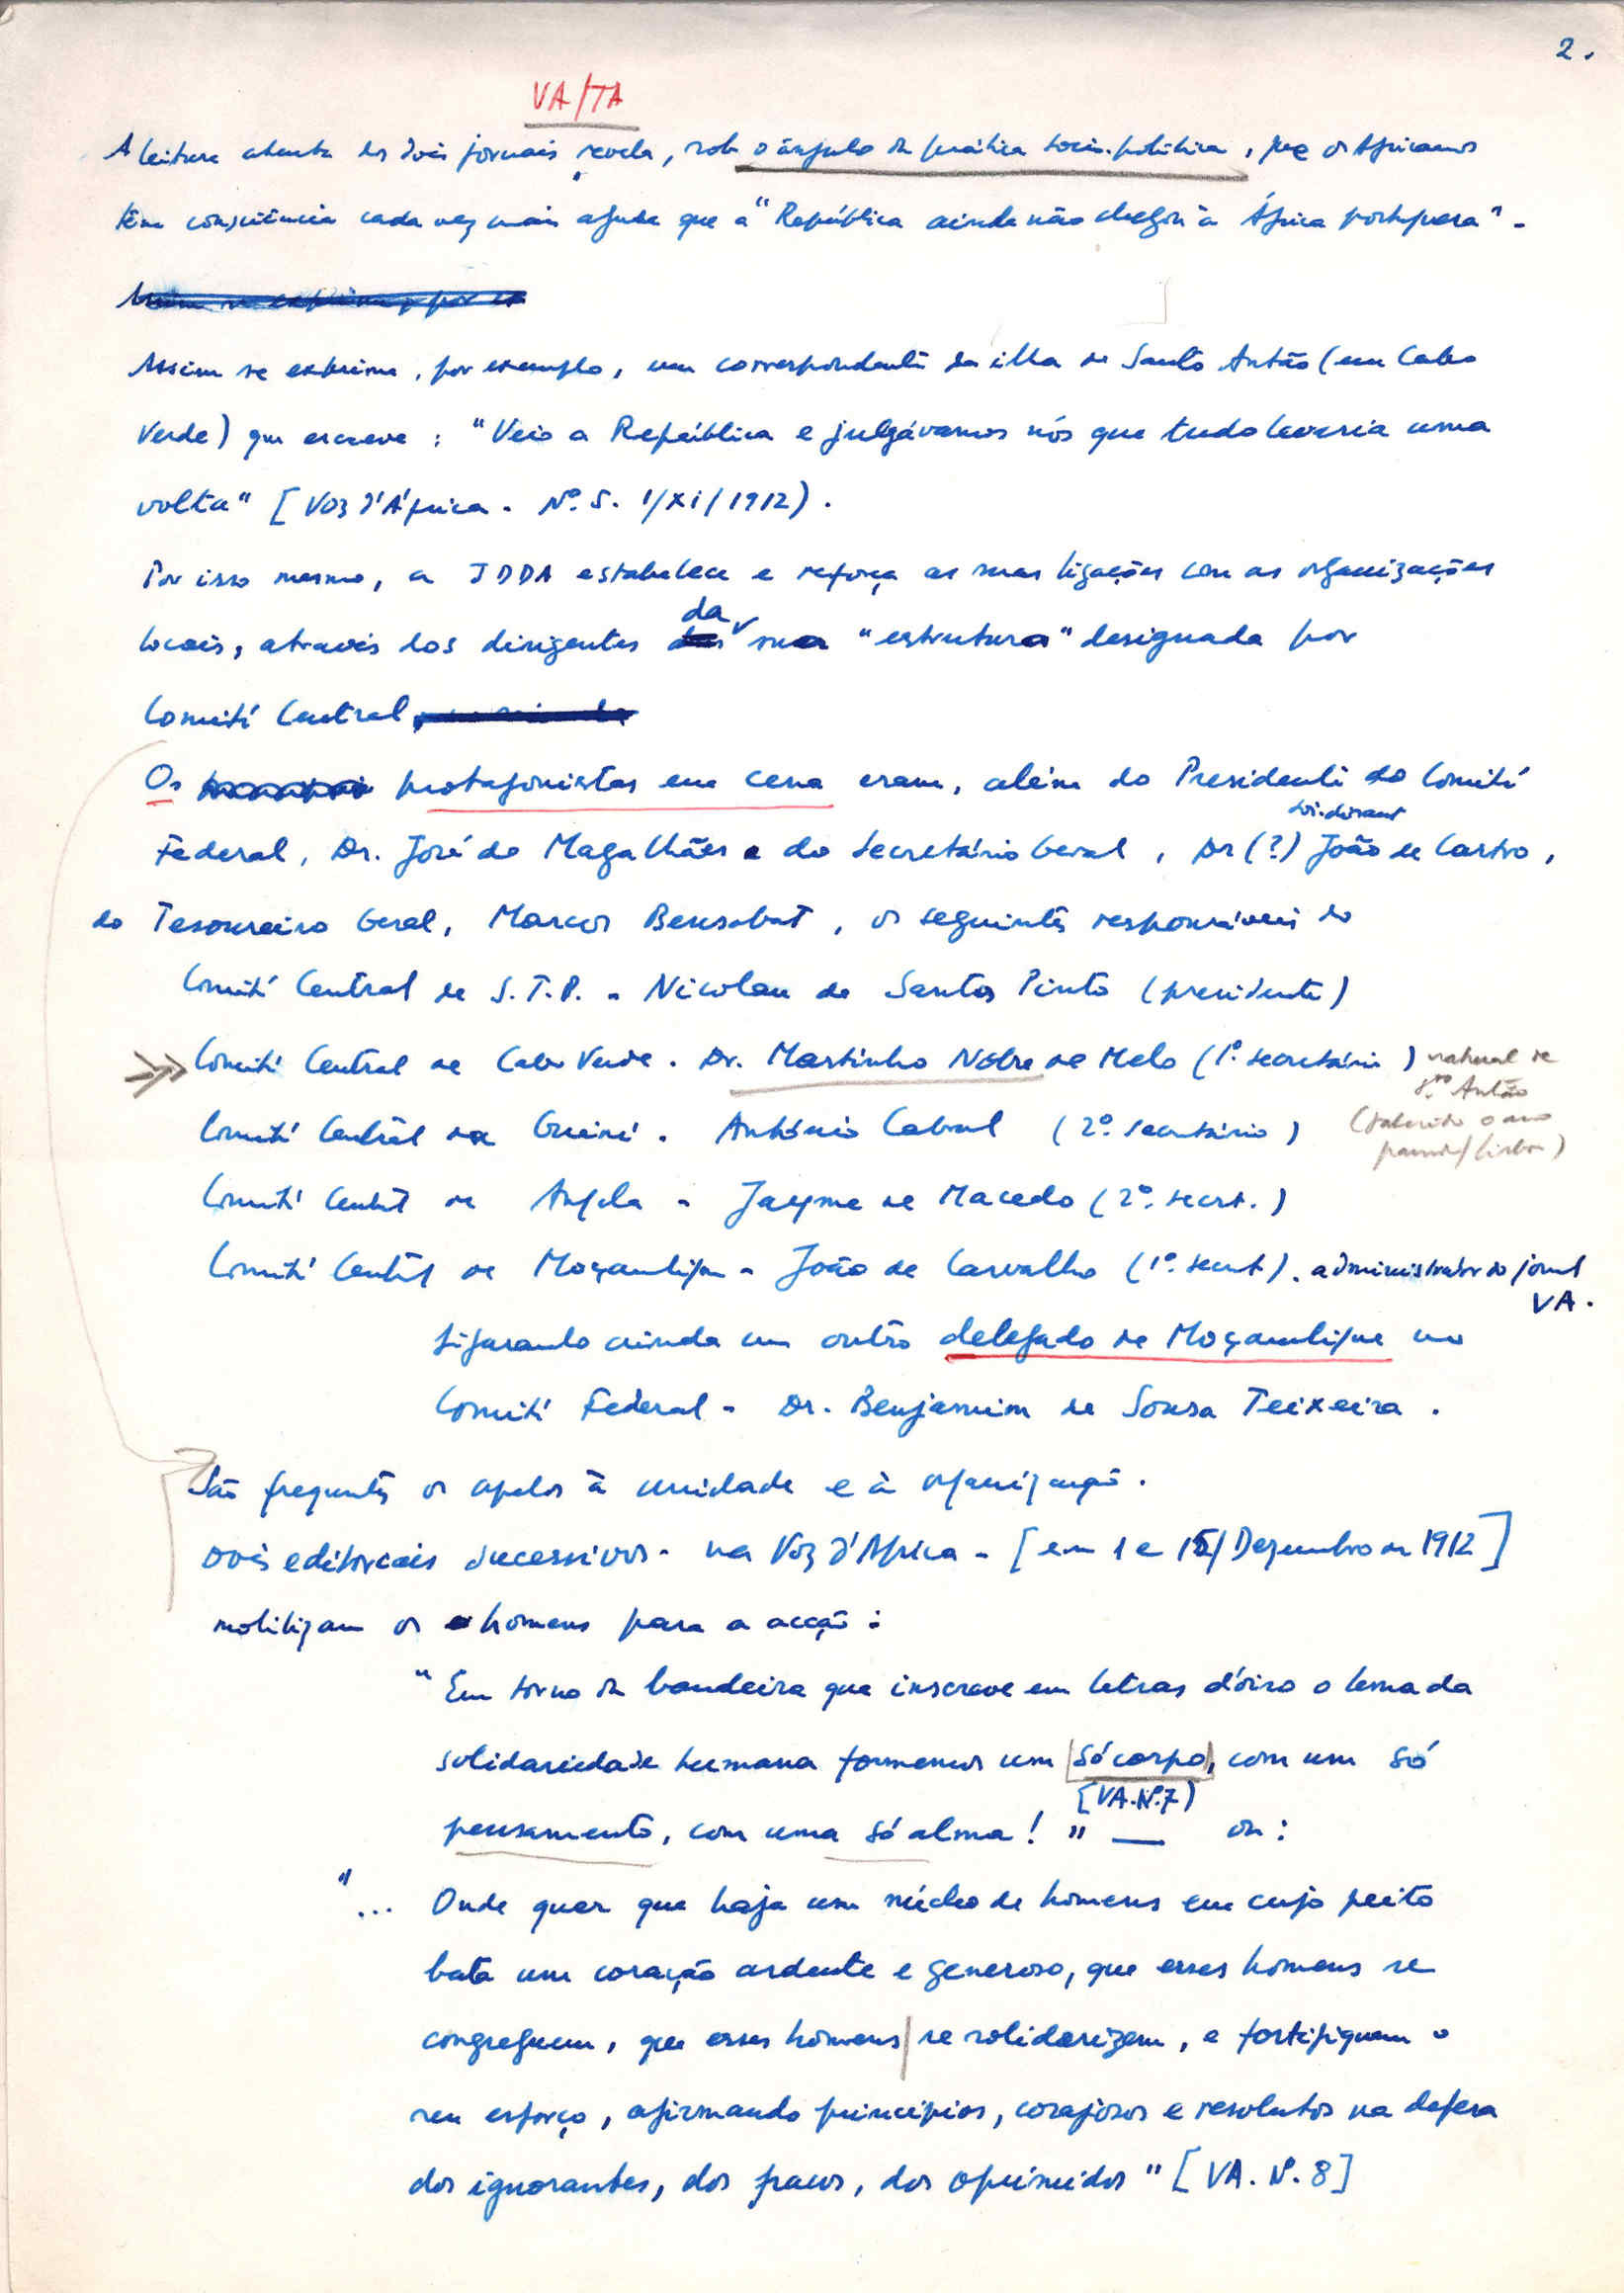 2.
VA/TA
A leitura atenta dos dois jornais revela, sob o ângulo da prática socio-política, que os Africanos
têm consciência cada vez mais aguda que a "República ainda não chegou à África portuguesa".
Assim se exprime, por ex
Assim se exprime, por exemplo, um correspondente da ilha de Santo Antão (em Cabo
Verde) que escreve : "Veio a República e julgávamos nós que tudo levaria uma
volta" [Voz d'África - Nº 5. 1/XI/1912).
Por isso mesmo, a JDDA estabelece e reforça as suas ligações com as organizações
locais, através dos dirigentes da sua "estrutura" designada por
Comité Central
Os protagonistas em cena eram, além do Presidente do Comité
soi-disant
Federal, Dr. José de Magalhães e do Secretário Geral, Dr (?) João de Castro,
do Tesoureiro Geral, Marcos Bensabat, os seguintes responsáveis do
Comité Central de S.T.P. - Nicolau de Santos Pinto (presidente)
Comité Central de Cabo Verde - Dr. Martinho Nobre de Melo (1º. secretário) natural de
Stº Antão
Comité Central da Guiné - António Cabral (2º. secretário) (falecido o ano
passado/Lisboa)
Comité Central de Angola - Jayme de Macedo (2º. secret.)
Comité Central de Moçambique - João de Carvalho (1º. secret.). administrador do jornal
VA.
figurando ainda um outro delegado de Moçambique no
Comité Federal - Dr. Benjamim de Sousa Teixeira.
São frequentes os apelos à unidade e à organização.
Dois editoriais sucessivos - na Voz d'Africa - [em 1 e 15/Dezembro de 1912]
mobilizam os homens para a acção :
"Em torno da bandeira que inscreve em letras d'óiro o lema da
solidariedade humana formemos um só corpo, com um só
[VA.Nº.7)
pensamento, com uma só alma! " — ou :
"... Onde quer que haja um núcleo de homens em cujo peito
bata um coração ardente e generoso, que esses homens se
congreguem, que esses homens se solidarizem, e fortifiquem o
seu esforço, afirmando princípios, corajosos e resolutos na defesa
dos ignorantes, dos fracos, dos oprimidos" [VA. Nº. 8]